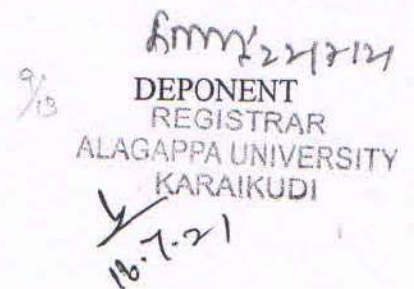 22/7/21
9/13
DEPONENT
REGISTRAR
ALAGAPPA UNIVERSITY
KARAIKUDI
16.7.21